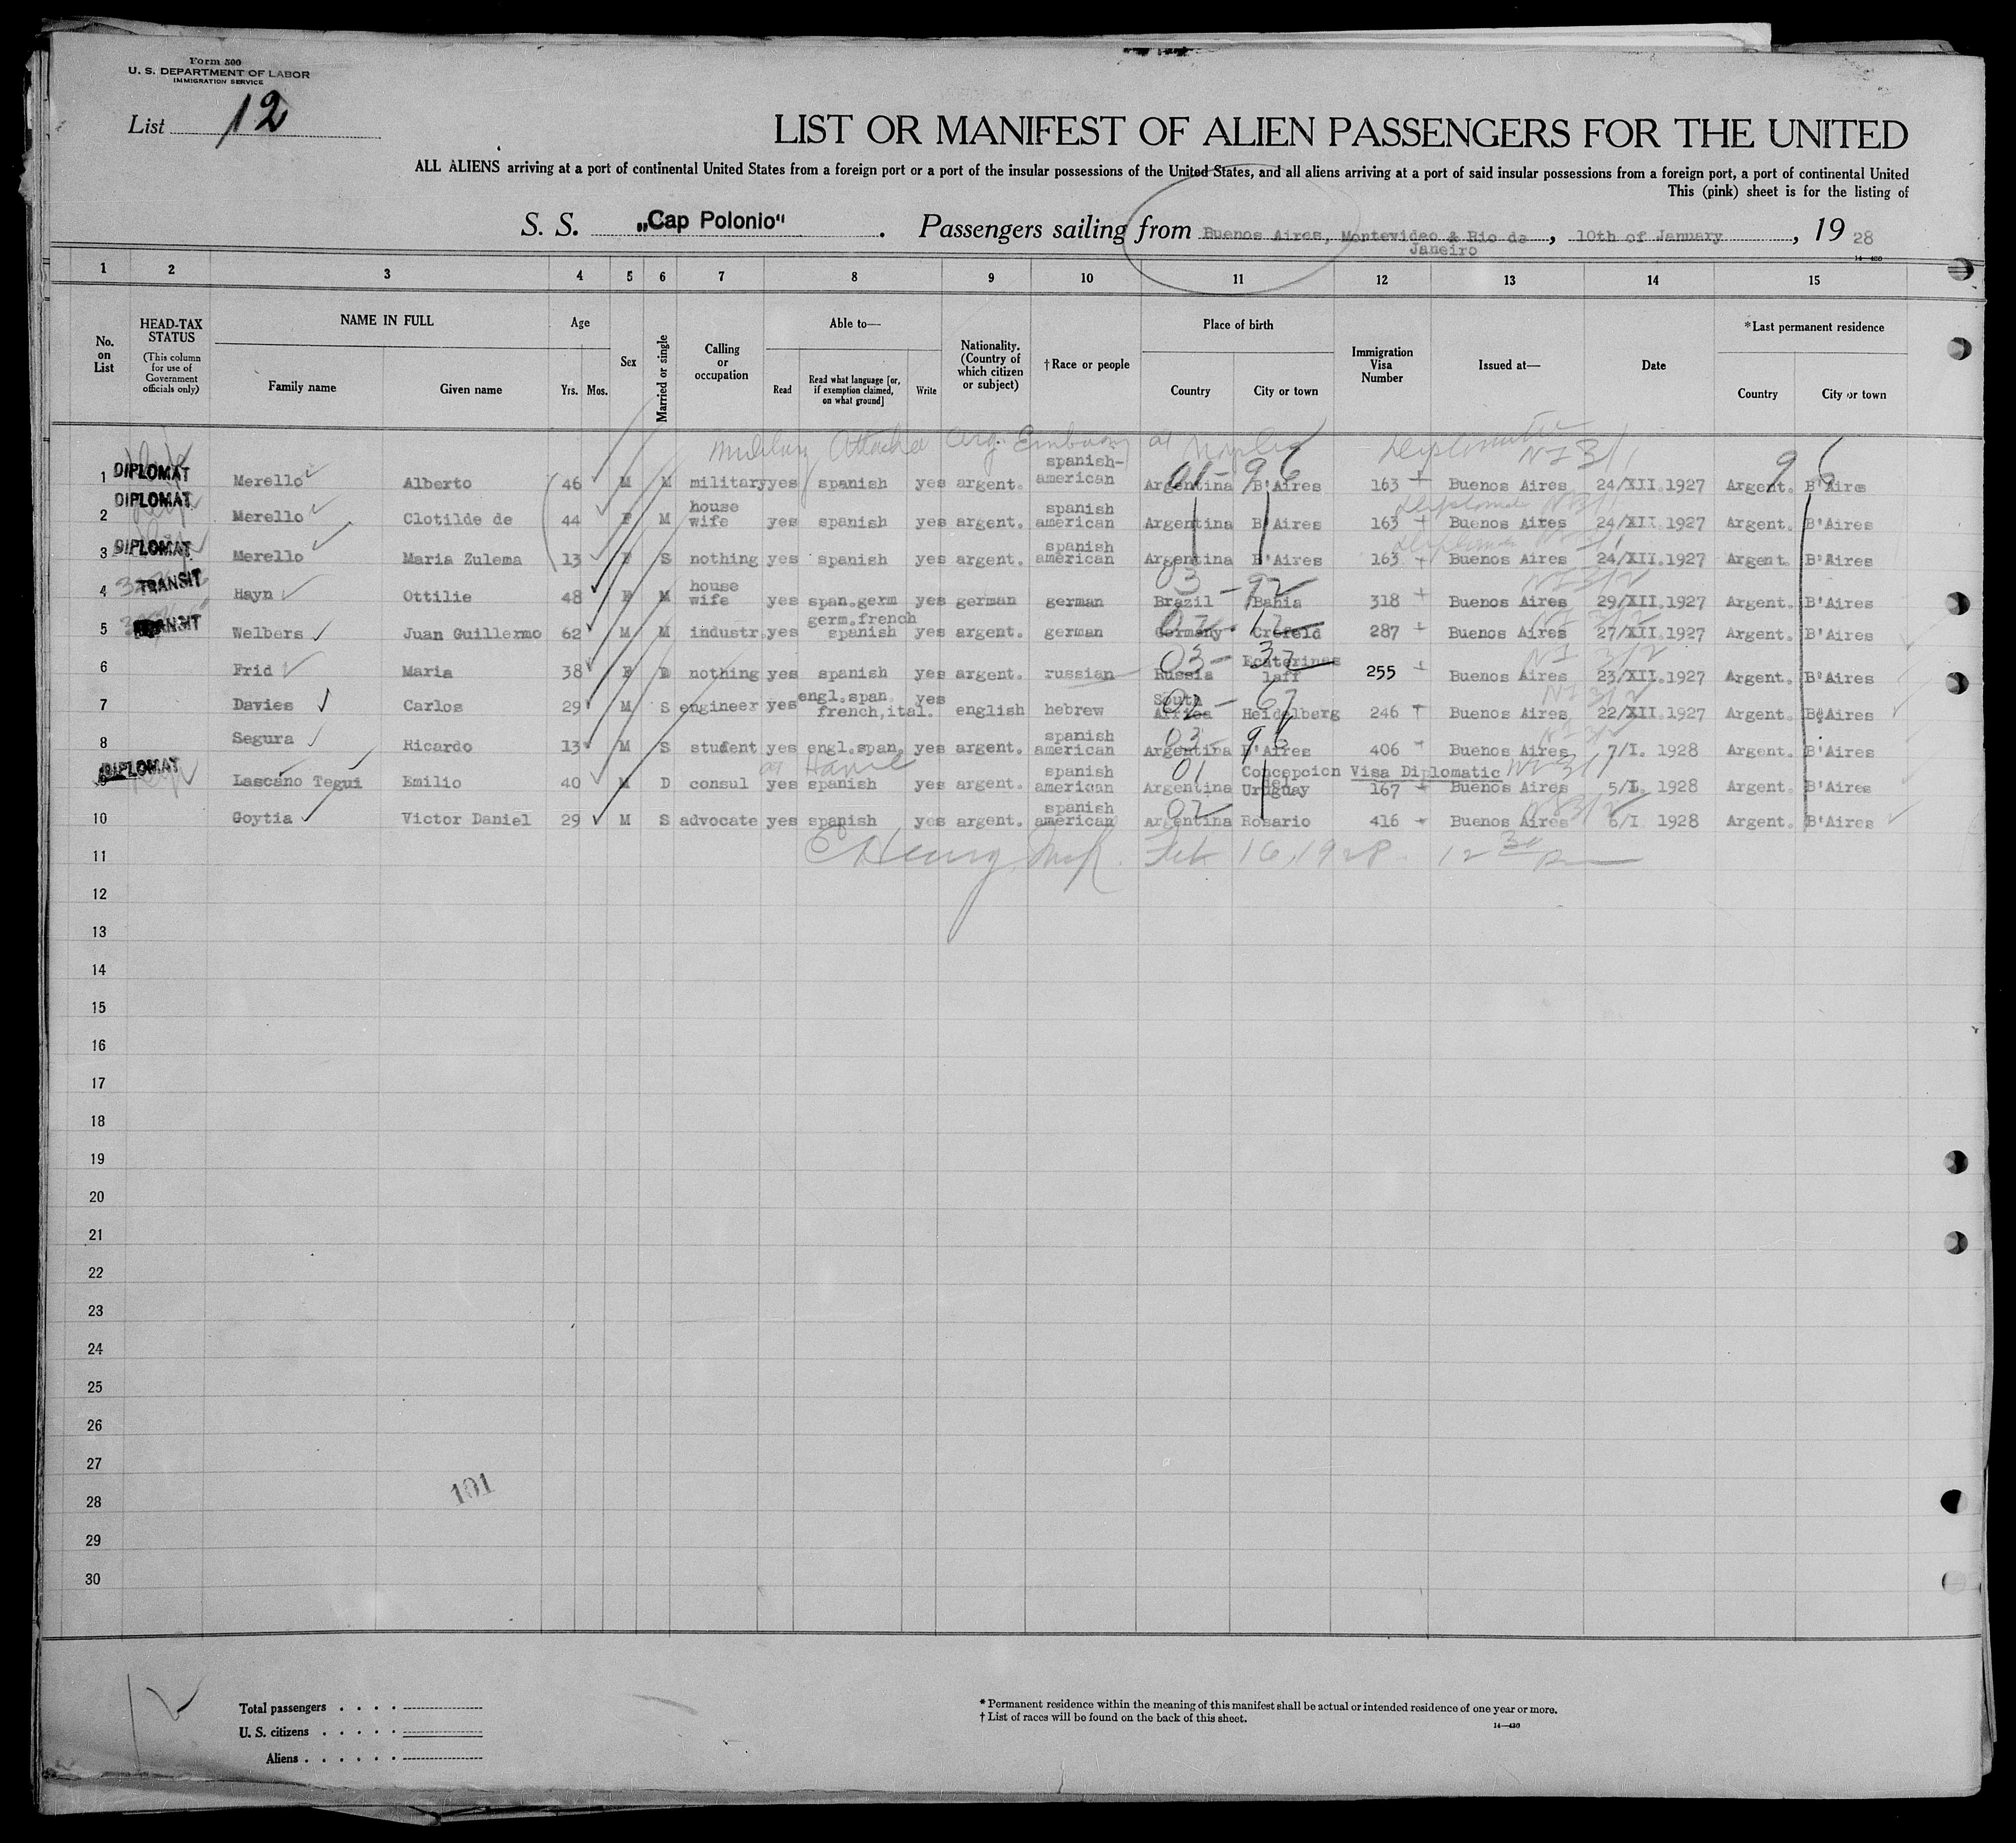 Form 500
U. S. DEPARTMENT OF LABOR
IMMIGRATION SERVICE
List 12
LIST OR MANIFEST OF ALIEN PASSENGERS FOR THE UNITED
ALL ALIENS arriving at a port of continental United States from a foreign port or a port of the insular possessions of the United States, and all aliens arriving at a port of said insular possessions from a foreign port, a port of continental United
This (pink) sheet is for the listing of
S. S. „Cap Polonio“. Passengers sailing from Buenos Aires, Montevideo & Rio de Janeiro, 10th of January, 1928
14—430
1 2 3 4 5 6 7 8 9 10 11 12 13 14 15
No. on List
HEAD-TAX STATUS
(This column for use of Government officials only)
NAME IN FULL
Family name Given name
Age
Yrs. Mos.
Sex
Married or single
Calling or occupation
Able to—
Read
Read what language [or, if exemption claimed, on what ground]
Write
Nationality. (Country of which citizen or subject)
†Race or people
Place of birth
Country City or town
Immigration Visa Number
Issued at—
Date
*Last permanent residence
Country City or town
Military Attaché Arg. Embassy at Diplomatic
1 DIPLOMAT Merello Alberto 46 M M military yes spanish yes argent. spanish-american Argentina B'Aires 163 Buenos Aires 24/XII.1927 Argent. B'Aires
01-96 96
2 DIPLOMAT Merello Clotilde de 44 F M house wife yes spanish yes argent. spanish american Argentina B'Aires 163 Buenos Aires 24/XII.1927 Argent. B'Aires
3 DIPLOMAT Merello Maria Zulema 13 F S nothing yes spanish yes argent. spanish american Argentina B'Aires 163 Buenos Aires 24/XII.1927 Argent. B'Aires
4 TRANSIT Hayn Ottilie 48 F M house wife yes span.germ yes german german Brazil Bahia 318 Buenos Aires 29/XII.1927 Argent. B'Aires
03-92
5 TRANSIT Welbers Juan Guillermo 62 M M industr. yes germ.french spanish yes argent. german Germany Crefeld 287 Buenos Aires 27/XII.1927 Argent. B'Aires
6 Frid Maria 38 F D nothing yes spanish yes argent. russian Russia Ecaterinas laff 255 Buenos Aires 23/XII.1927 Argent. B'Aires
03-32
7 Davies Carlos 29 M S engineer yes engl.span. french,ital. yes english hebrew South Africa Heidelberg 246 Buenos Aires 22/XII.1927 Argent. B'Aires
02-67
8 Segura Ricardo 13 M S student yes engl.span. yes argent. spanish american Argentina B'Aires 406 Buenos Aires 7/I. 1928 Argent. B'Aires
03-96
at Havre
9 DIPLOMAT Lascano Tegui Emilio 40 M D consul yes spanish yes argent. spanish american Argentina Concepcion del Uruguay Visa Diplomatic 167 Buenos Aires 5/I. 1928 Argent. B'Aires
01
10 Goytia Victor Daniel 29 M S advocate yes spanish yes argent. spanish american Argentina Rosario 416 Buenos Aires 6/I 1928 Argent. B'Aires
02
11 Henry Feb 16, 1928. 12 30
12
13
14
15
16
17
18
19
20
21
22
23
24
25
26
27
28
29
30
101
12
Total passengers . . . .
U. S. citizens . . . . .
Aliens . . . . . .
* Permanent residence within the meaning of this manifest shall be actual or intended residence of one year or more.
† List of races will be found on the back of this sheet.
14—430